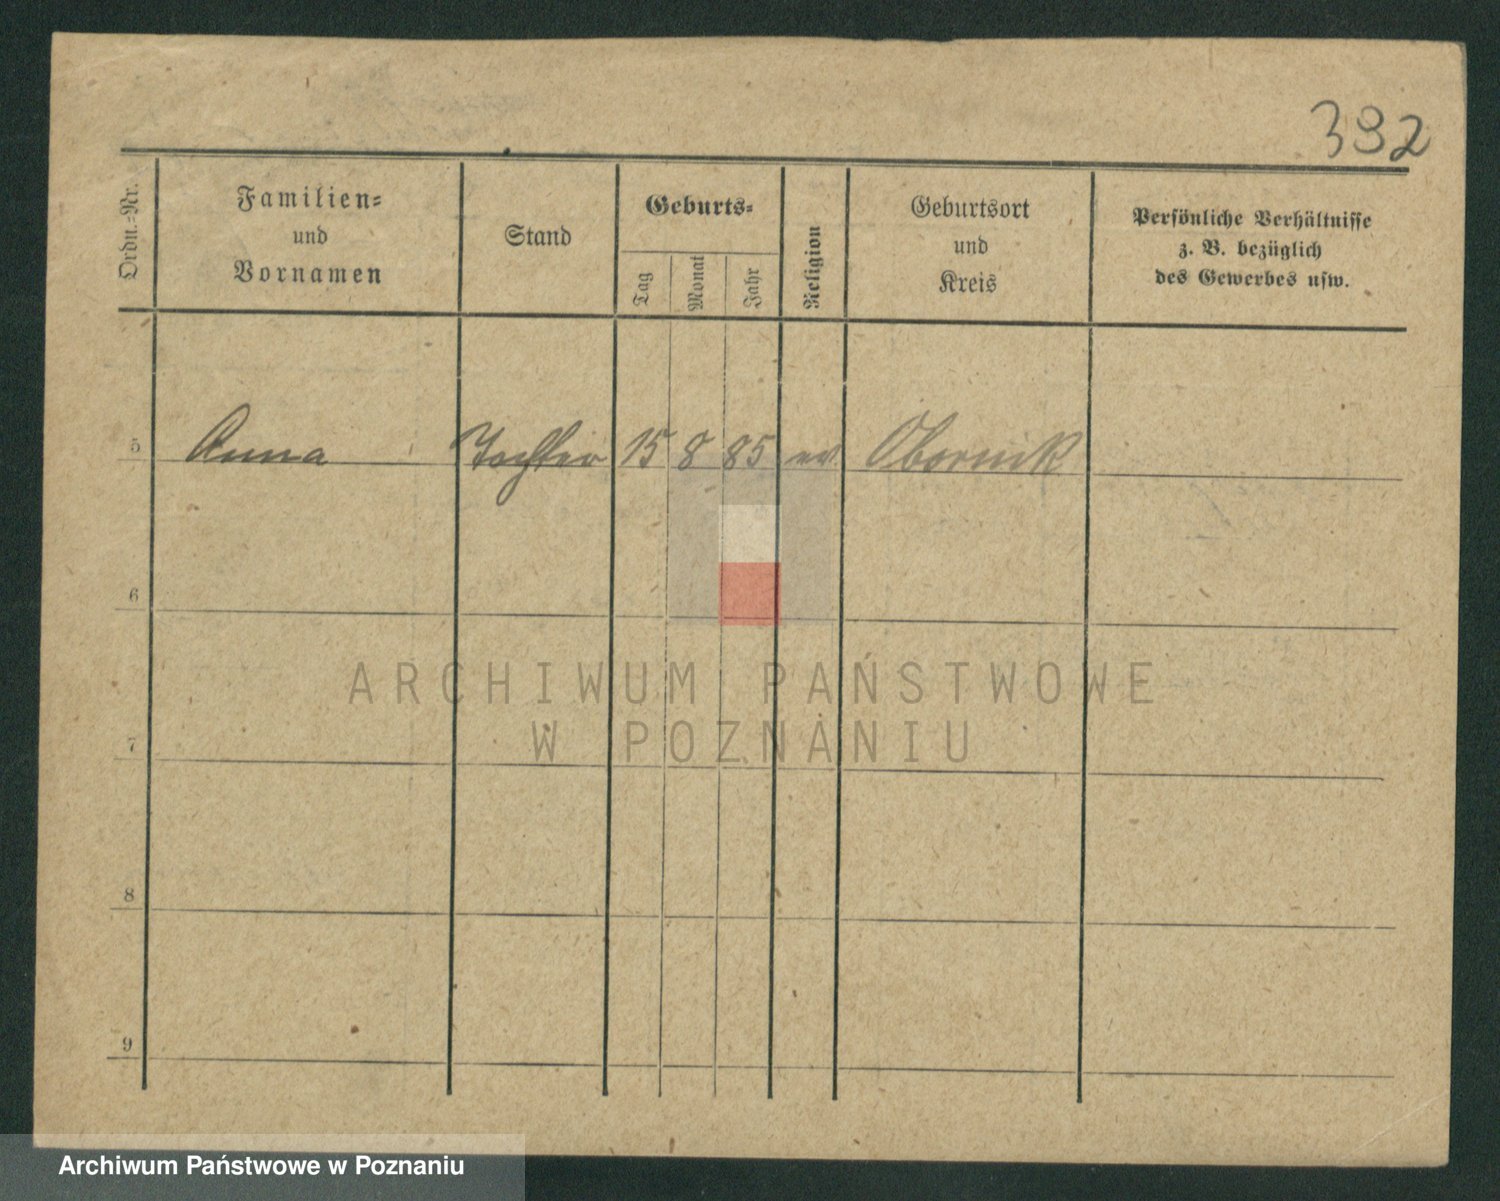 392
Ordn.=Nr.
Familien=
und
Vornamen
Stand
Geburts=
Tag
Monat
Jahr
Religion
Geburtsort
und
Kreis
Persönliche Verhältnisse
z. B. bezüglich
des Gewerbes usw.
5 Anna Tochter 15 8 85 ev Obornik
6
ARCHIWUM PAŃSTWOWE
W POZNANIU
7
8
9
Archiwum Państwowe w Poznaniu